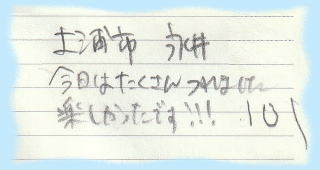 土浦市 永井
今日はたくさん つれました
楽しかったです!!!